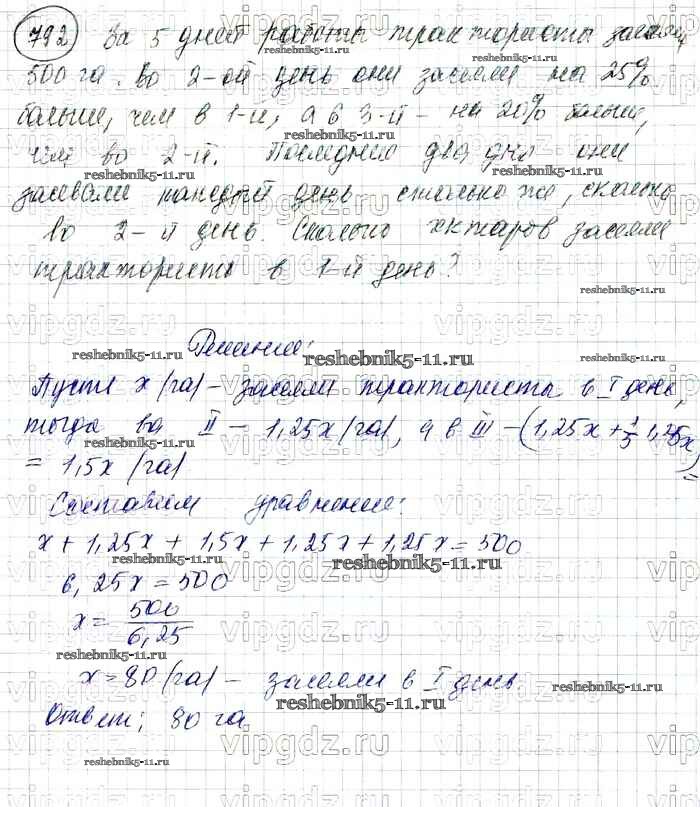 792 За 5 дней работы трактористы засеяли
500 га. Во 2-ой день они засеяли на 25%
больше, чем в 1-й, а в 3-й - на 20% больше,
чем во 2-й. Последние два дня они
засевали каждый день столько же, сколько
во 2-й день. Сколько гектаров засеяли
трактористы в 1-й день?
Решение:
Пусть x (га) - засеяли трактористы в I день,
тогда во II - 1,25x (га), а в III - (1,25x + 1/5 · 1,25x) =
= 1,5x (га)
Составим уравнение:
x + 1,25x + 1,5x + 1,25x + 1,25x = 500
6,25x = 500
x = 500/6,25
x = 80 (га) - засеяли в I день
Ответ: 80 га
reshebnik5-11.ru
vipgdz.ru